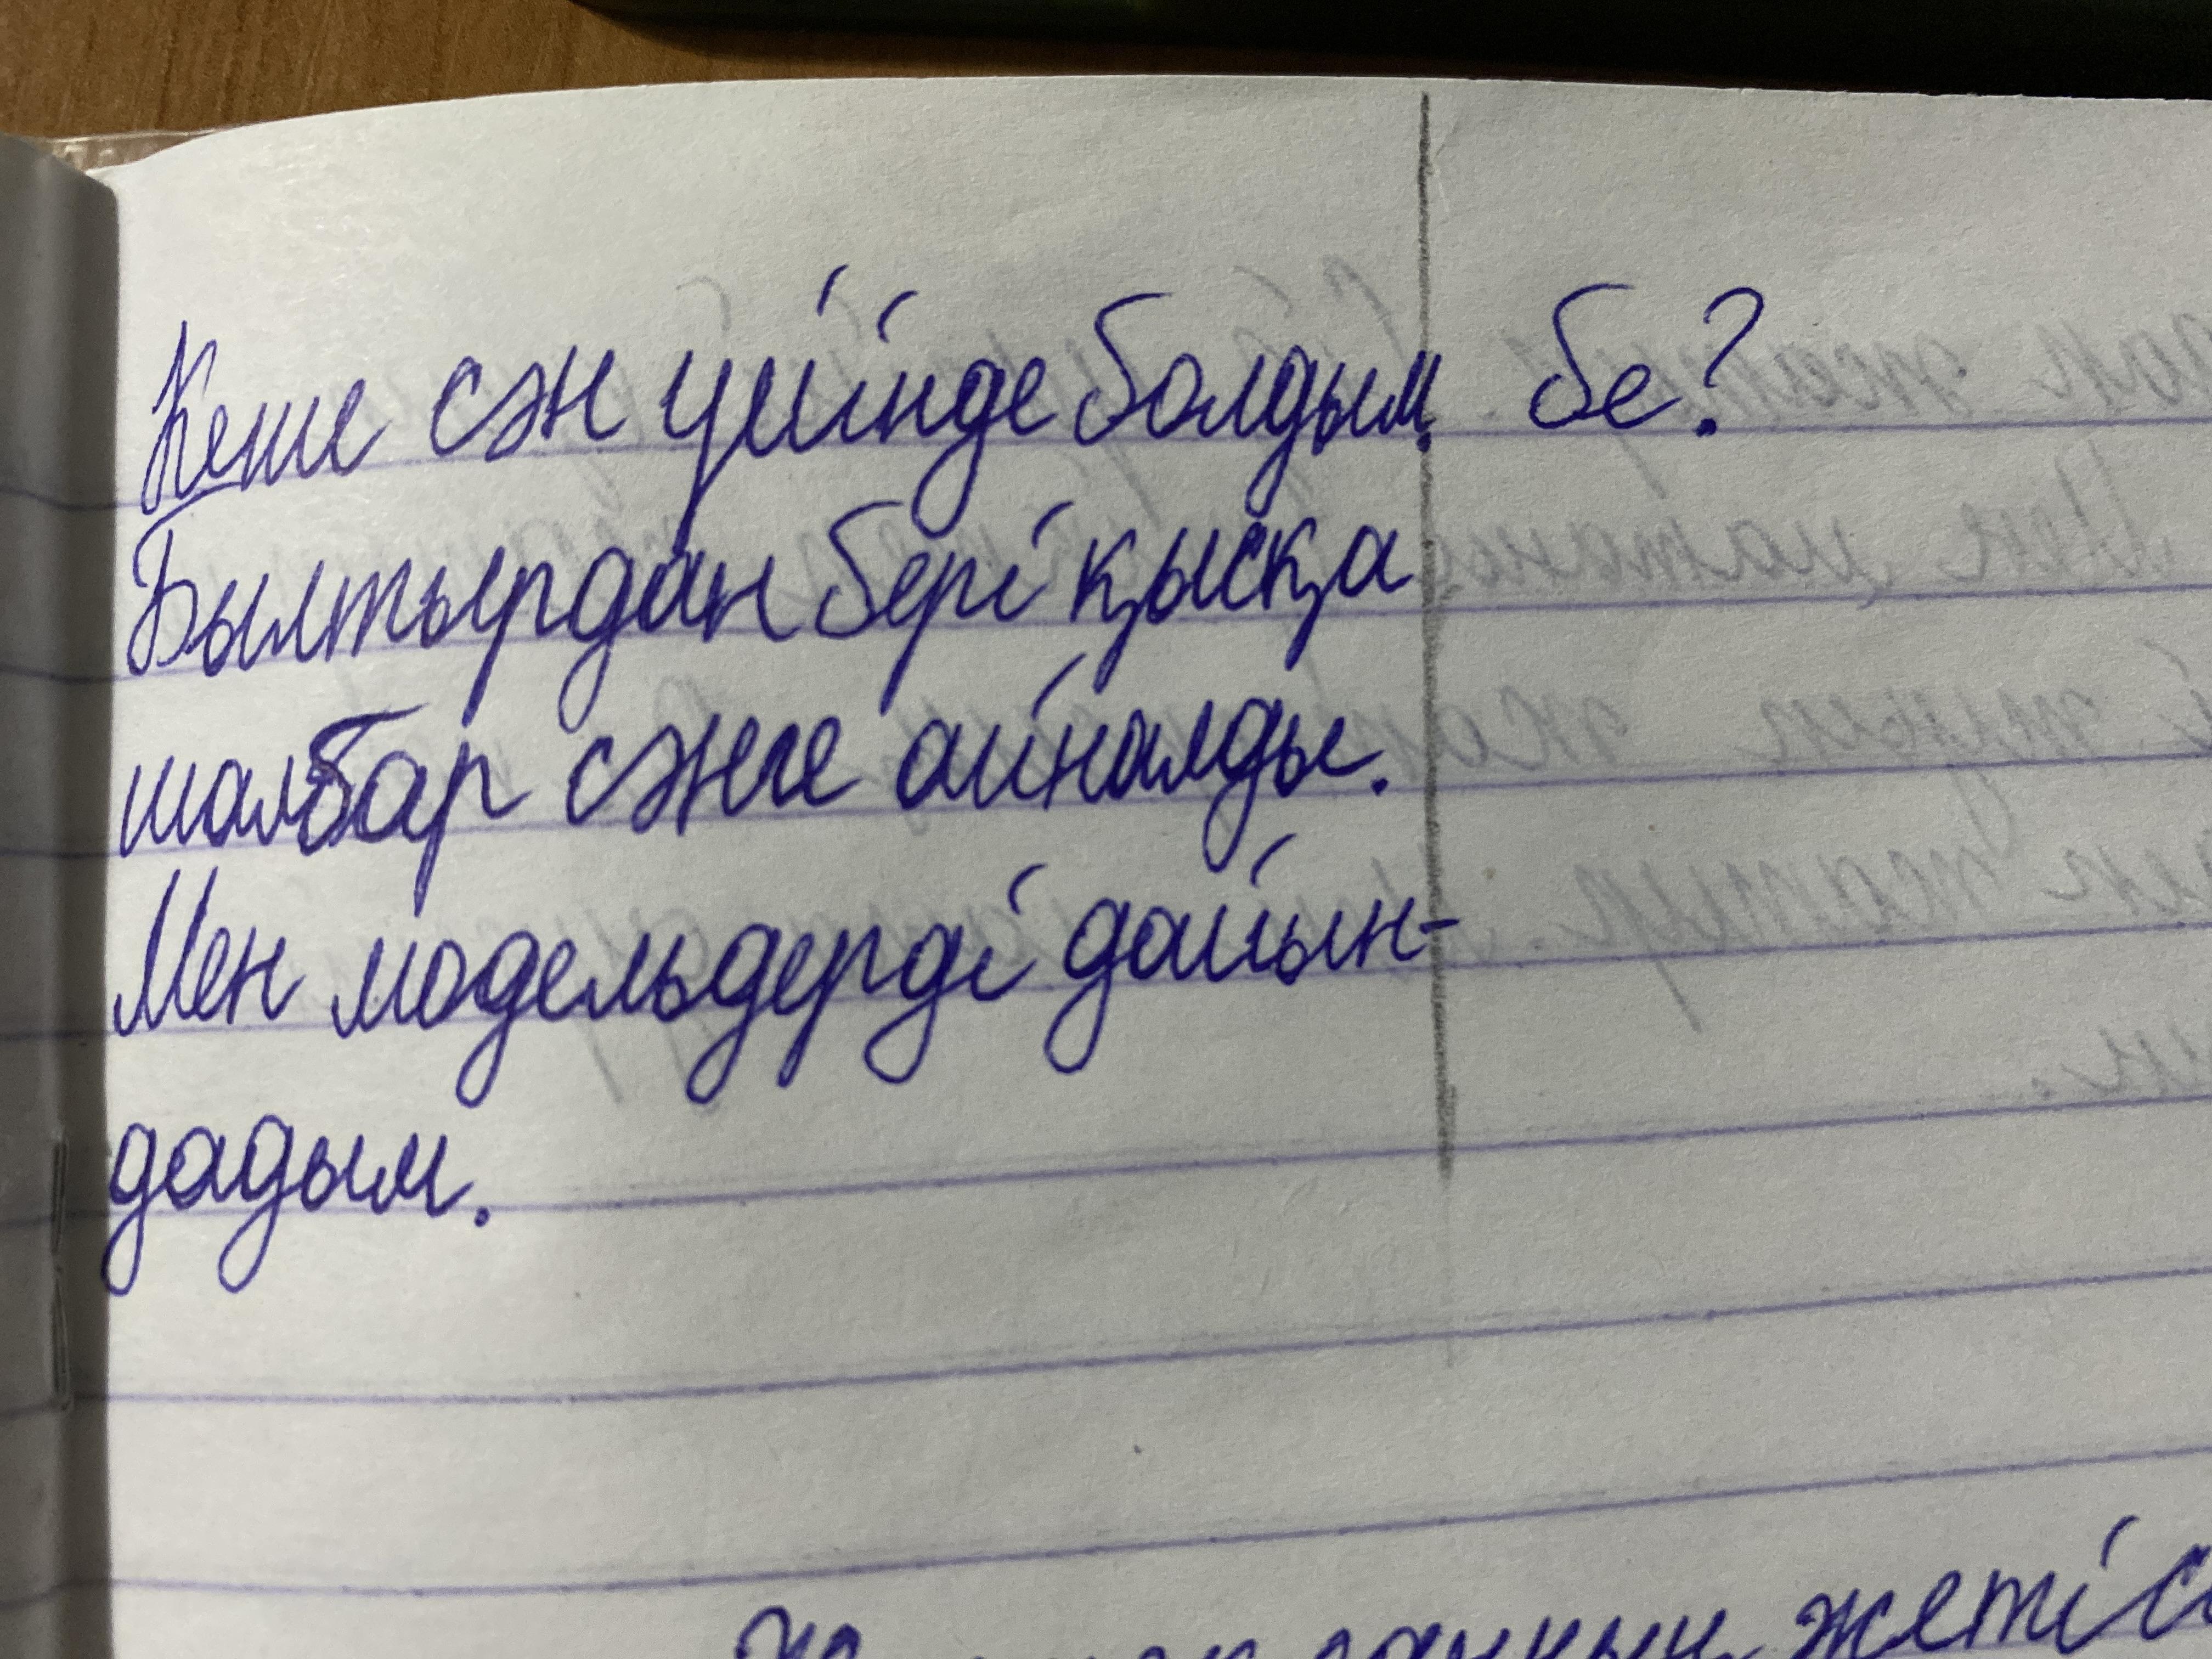 Кеше сән үйінде болдым. бе?
Былтырдан бері қысқа
шалбар сәнге айналды.
Мен модельдерді дайын-
дадым.